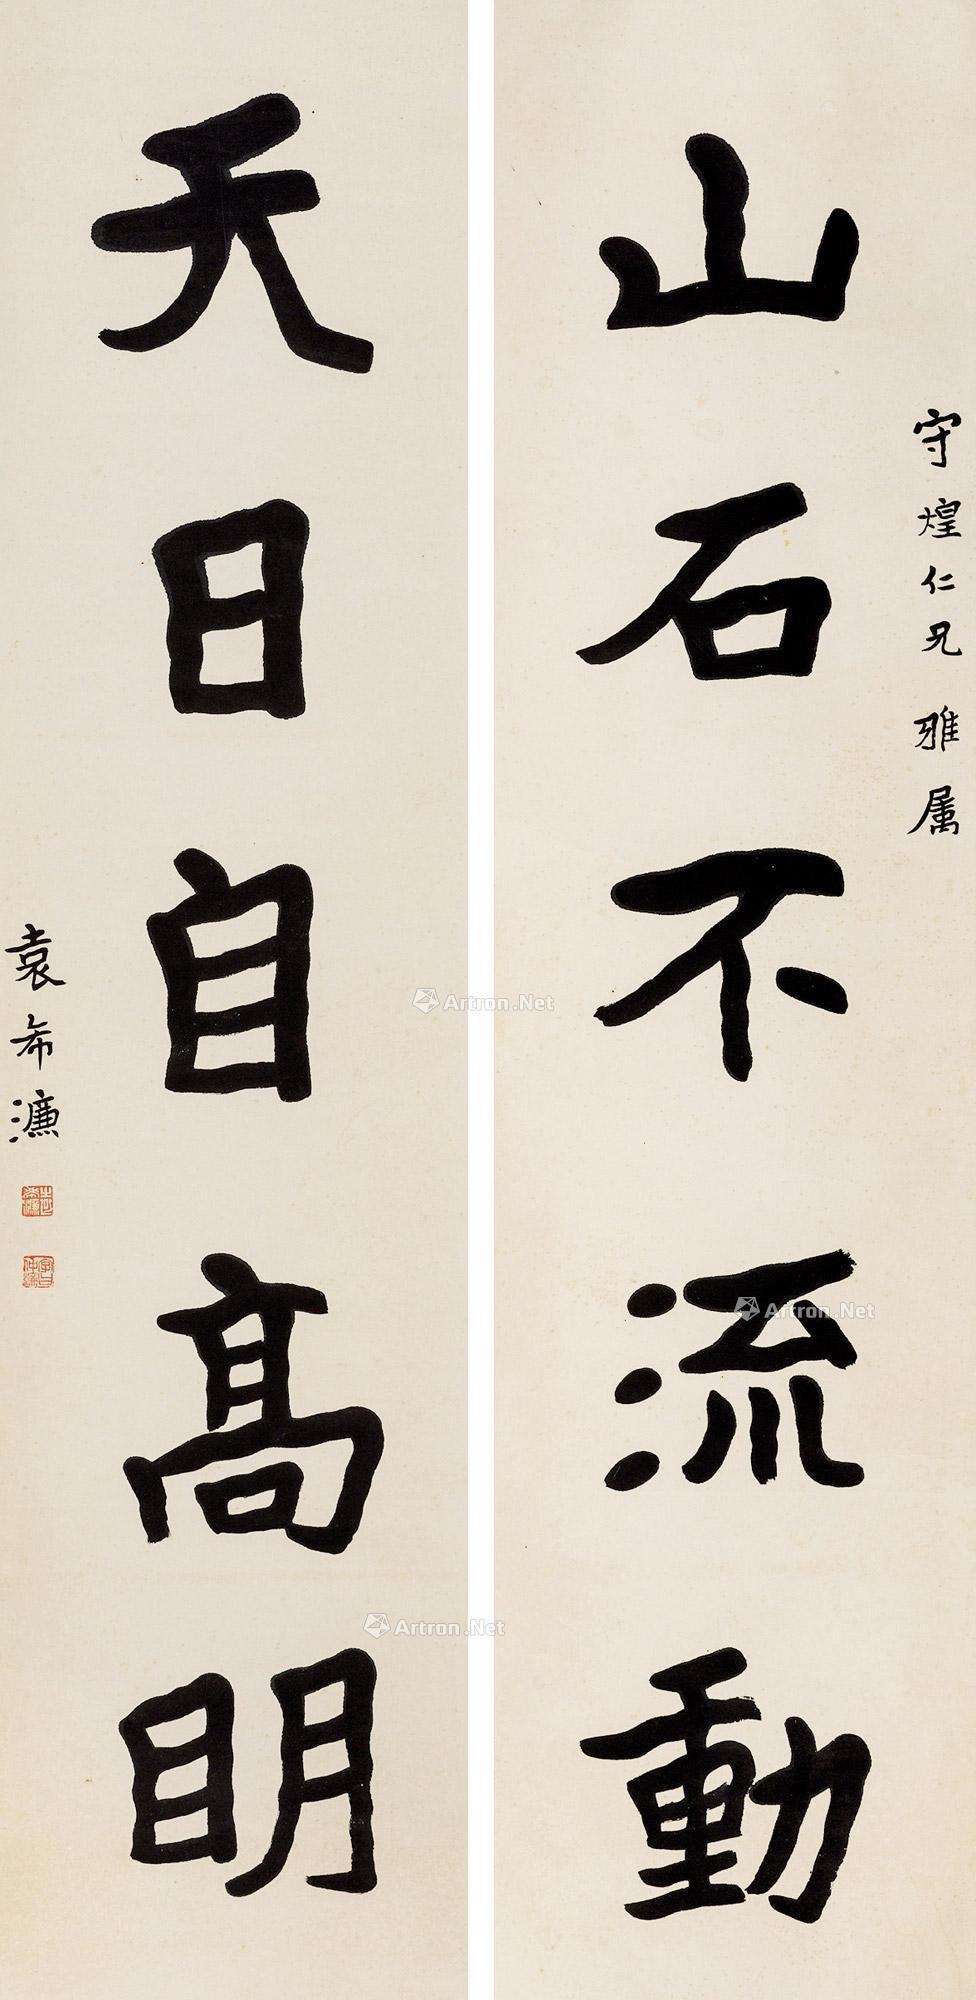 守煌仁兄雅属
山石不流動
天日自高明
袁希濂
Artron.Net
Artron.Net
Artron.Net